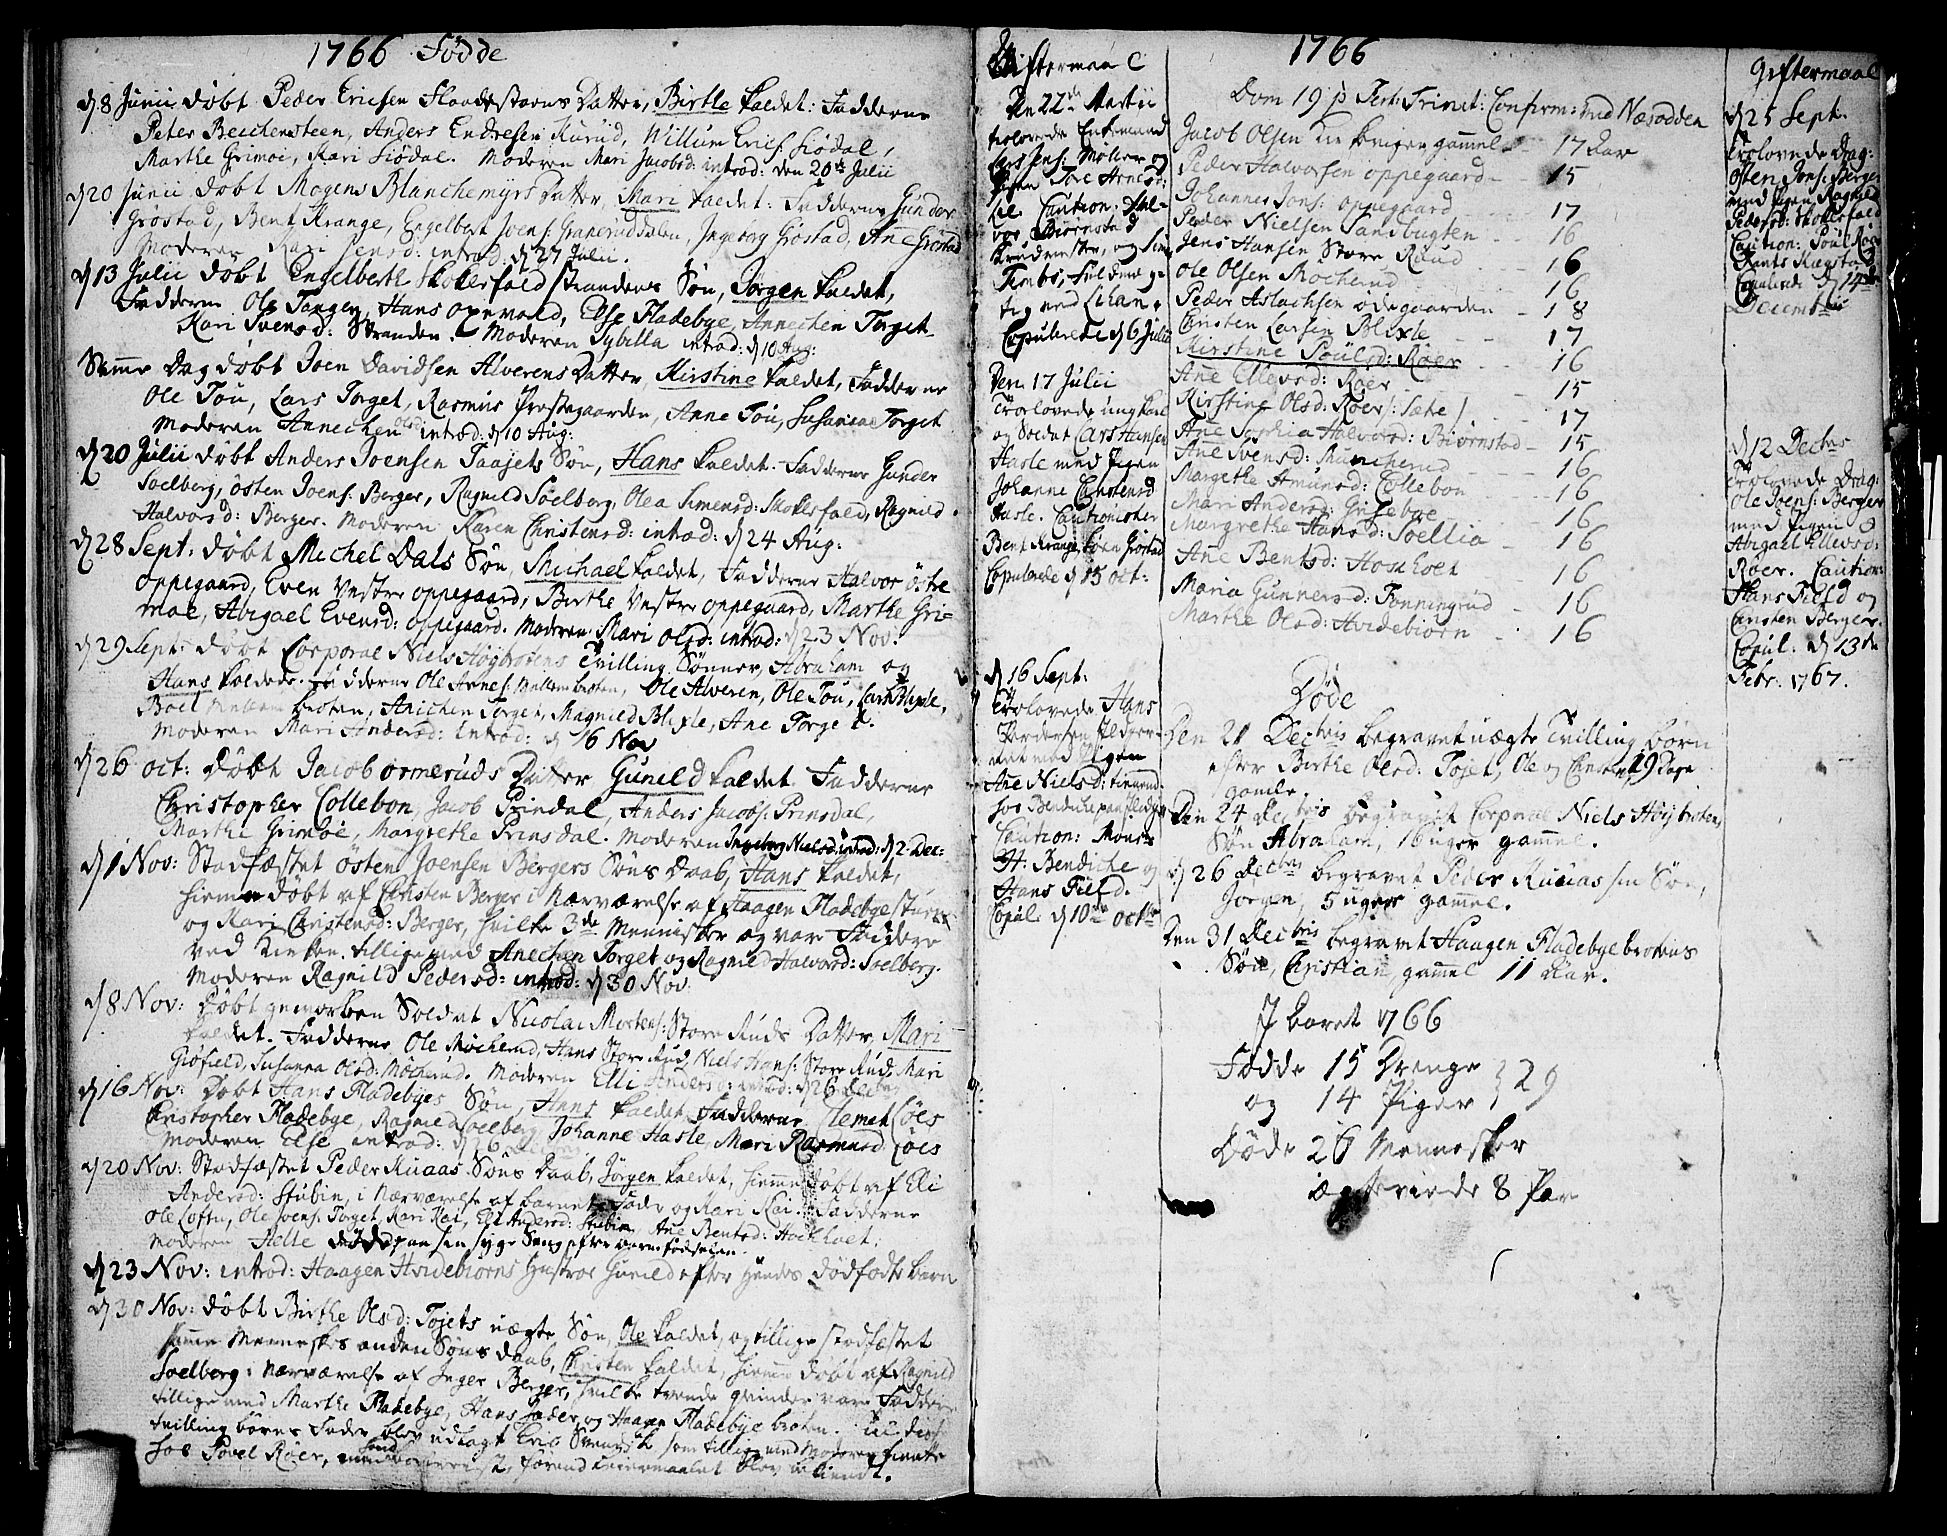 1766 Fødde
d 8 Junii døbt Peder Ericsen Flaadestavns Datter, Birtle kaldet: Fadderne
Peter Beichensteen, Anders Endresen Kurud, Willum Erics: Siødal,
Marthe Grimøe, Kari Siødal. Moderen Mari Jacobsd: introd: den 20de Julii
d 20 Junii døbt Mogens Blanchemyrs Datter, Mari kaldet: Fadderne Gunder
Grøstad, Bent Krange, Engelbert Joens: Granerudsdalen, Ingeborg Grøstad, Ane Grøstad
Moderen Kari Jensd: introd: d 27 Julii.
d 13 Julii døbt Engelbertt Skokefald strandens Søn, Jørgen kaldet,
Fadderne Ole Tangen, Hans opnvald, Else Fladebye, Annechen Torget
Kari Svensd: Stranden. Moderen Sybilla introd: d 10 Aug:
Samme Dag døbt Joen Davidsen Alverens Datter, Kirstine kaldet, Fadderne
Ole Tou, Lars Torget, Rasmus Præstegaarden, Anne Tou, Susanna Torget
Moderen Annechen Olsd introd: d 10 Aug:
d 20 Julii døbt Anders Joensen Taajets Søn, Hans kaldet. Fadderne Gunder
Soelberg, Østen Joens: Berger, Ragnild Soelberg, Olea Simensd: Skokefald, Ragnild
Halvorsd: Berger. Moderen Karen Christensd: introd: d 24 Aug:
d 28 Sept: døbt Michel Dals Søn, Michael kaldet, Fadderne Halvor østre
oppegaard, Even Vestre oppegaard, Birthe Vestre oppegaard, Marthe Gri-
møe, Abigael Evensd: oppegaard. Moderen Mari Olsd: introd: d 23 Nov:
d 29 Sept: døbt Corporal Niels Høybrotens Tvilling Sønner, Abraham og
Hans kaldede. Fadderne Ole Arnes: Mellembroten, Ole Alveren, Ole Tou, Lars Blixle,
Boel Mellembroten, Anichen Torget, Magnild Blixle, Ane Torget.
Moderen Mari Andersd: introd: d 16 Nov
d 26 oct: døbt Jacob ormeruds Datter Gunild kaldet Fadderne
Christopher Collebon, Jacob Prindal, Anders Jacobs: Prinsdal,
Marthe Grimøe, Margrethe Prinsdal. Moderen Ingeborg Nielsd introd: d 2 Dec:
d 1 Nov: Stadfæstet Østen Joensen Bergers Søns Daab, Hans kaldet,
hiemmedøbt af Christen Berger i Nærværelse af Haagen Fladebye stuen
og Kari Christensd: Berger, hvilke 3de Mennisker og var Faddere
ved Kirken tillige med Anechen Torget og Ragnild Halvorsd: Soelberg.
Moderen Ragnild Pedersd: introd: d 30 Nov
d 8 Nov: Døbt geworben Soldat Nicolai Mortens: Store Ruds Datter, Mari
kaldet. Fadderne Ole Mocherud, Hans Store Rud, Niels Hans: Store Rud, Mari
Giøfield, Susanna Olsd: Mocherud. Moderen Elli Andersd: introd: d 26 Decbr
d 16 Nov: Døbt Hans Fladebyes Søn, Hans kaldet, Fadderne Clemet Løes
Christopher Fladebye, Ragnild Soelberg, Johanne Hasle, Mari Rasmusd Løes
Moderen Else introd: d 26 Decbr
d 20 Nov: Stadfæstet Peder Ruaas Søns Daab, Jørgen kaldet, hiemmedøbt af Eli
Andersd: Stubin, i Nærværelse af barnets Fader og Kari Kai. Fadderne
Ole Løftu, Ole Joens: Torget, Kari Kai, Eli Andersd: Stubin, Ane Bentsd: Hochholt.
Moderen Helle døde paa sin syge Seng efter barnefødselen.
d 23 Nov: introd: Haagen Hvidebiørns Hustroe Gunild efter hendes dødfødte barn
d 30 Nov: døbt Birthe Olsd: Tøjets uægte Søn, Ole kaldet, og tillige stadfæstet
samme Menneskes anden Søns daab, Christen kaldet, hiemmedøbt af Ragnild
Soelberg i Nærværelse af Inger Berger, hvilke tvende qvinder var Faddere
tillige med Marthe Fladebye, Hans Sader og Haagen Fladebye broten. Til diss:
tvilling børns Fader blev udlagt Eric Svensk som tillige med Moderen tiente
hos Povel Røer, men bortrejst, førend Leiermaalet blev bekiendt.
Giftermaal
Den 22de Martii
trolovede Enkemand
Lars Jens: Møller og
Pigen Tore Arnesd:
Caution: Hal-
vor Biørnstad
Copulerede d 6 Julii
Den 17 Julii
Trolovede ungkarl
og Soldat Lars Hansen
Hasle med Pigen
Johanne Christensd
Hasle. Cautionister
Bent Krange, Joen Grøstad
Copulerede d 15 oct:
d 16 Sept:
Trolovede Hans
Pedersen
med Pigen
Ane Nielsd: tienende
hos Bendiche paa Flidpen
Caution: Mons:
H: Bendiche og
Hans Field.
Copul: d 10de octbr
1766
Dom 19 p Fest: Trinit: Confirm: ved Næsodden
Jacob Olsen Krangen gammel - 17 Aar
Peder Halvorsen oppegaard - 15
Johannes Jons: oppegaard - 17
Peder Nielsen Sandbugten - 16
Jens Hansen Store Ruud - 16
Ole Olsen Mocherud - 16
Peder Aslachsen ødegaarden - 18
Christen Larsen Blixle - 17
Kirstine Poulsd: Røer - 16
Ane Ellevsd: Røer - 15
Kirstine Olsd: Røer /: Sæte / - 17
Ane Sophia Halvorsd: Biørnstad - 15
Ane Svensd: Muncherud - 16
Margethe Amundsd: Collebon - 16
Mari Andersd: Griseboe - 16
Margrethe Hansd: Soellia - 16
Ane Bentsd: Hochholt - 16
Maria Gunnersd: Fonningrud - 16
Marthe Olsd: Hvidebiørn - 16
Døde
Den 21 Decbris begravet uægte Tvilling børn
efter Birthe Olsd: Tøjet, Ole og Christen, 19 Dage
gamle.
Den 24 Decbris begravet Corporal Niels Høybroten,
Søn Abraham, 16 uger gammel.
d 26 Decbris begravet Peder Ruaas sin Søn,
Jørgen, 5 uger gammel.
Den 31 Decbris begravet Haagen Fladebye brotens
Søn, Christian, gammel 11 Aar.
I Aaret 1766
Fødde 15 Drenge
og 14 Piger } 29
Døde 26 Mennesker
ægteviede 8 Par
Giftermaal
d 25 Sept.
Trolovede Drag:
Østen Jons: Berger
med Pigen Ragnild
Pedersd: Skokefald
Caution: Poul Røer
Copulerede d 14de
Decembris
d 12 Decbris
Trolovede Drag:
Ole Joens: Berger
med Pigen
Abigael Ellevsd:
Røer. Caution:
Hans Field og
Christen Berger.
Copul: d 13de
Febr. 1767.